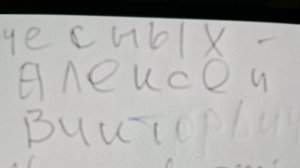 чесных -
Алексей
Викторвич